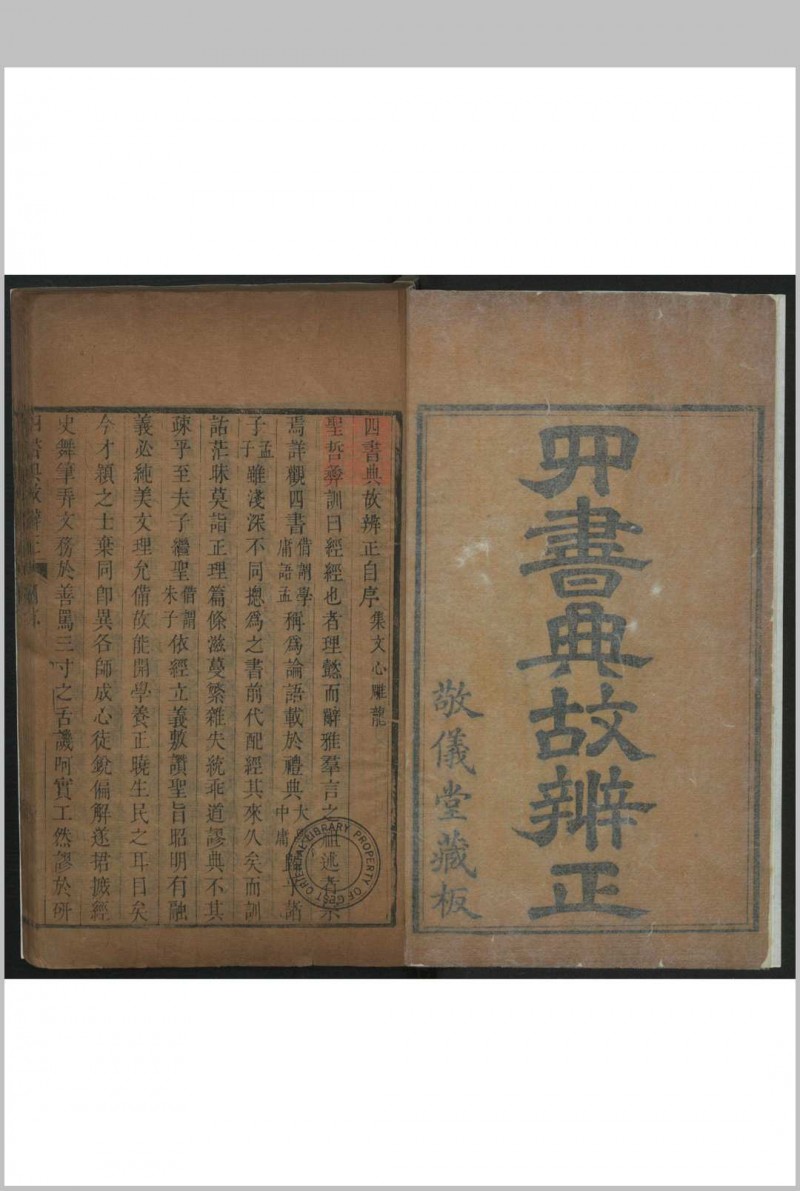 四書典故辨正
敬儀堂藏板
四書典故辨正自序 集文心雕龍
聖哲彝訓曰經經也者理懿而辭雅羣言之祖述者宗
焉詳觀四書 借謂學庸語孟 稱爲論語載於禮典 大學中庸 諸
子 孟子 雖淺深不同摠爲之書前代配經其來久矣而訓
詁茫昧莫詣正理篇條滋蔓繁雜失統乖道謬典不其
疎乎至夫子繼聖 借謂朱子 依經立義敷讚聖旨昭明有融
義必純美文理允備故能開學養正曉生民之耳目矣
今才穎之士棄同卽異各師成心徒銳偏解遂捃摭經
史舞筆弄文務於善罵三寸之舌譏呵實工然謬於研
四書典故辨正
PROPERTY OF GEST ORIENTAL LIBRARY